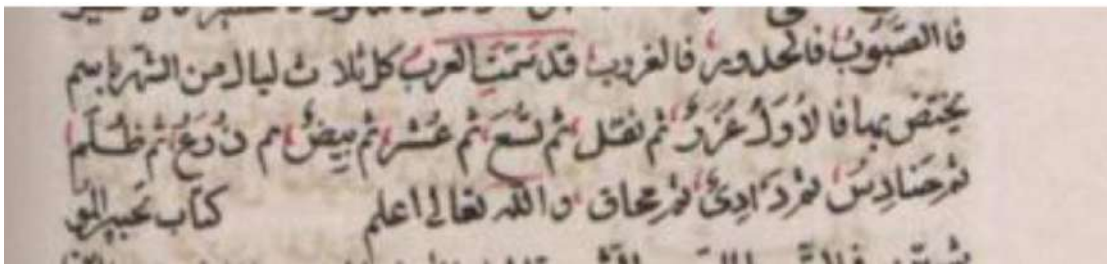 فالصَّبُوبُ فالحدور فالغروب قد سَمَّتِ العربُ كل ثلاث ليال من الشهر باسم
يختص بها فالاُوَلُ غُرَرٌ ثم نفل ثم تُسَعٌ ثم عُشَر ثم بيضٌ ثم دُرَعٌ ثم ظُلَم
ثم حَنَادِسُ ثم دَرَادِئُ ثم محاق والله تعالى اعلم كتاب تحبير